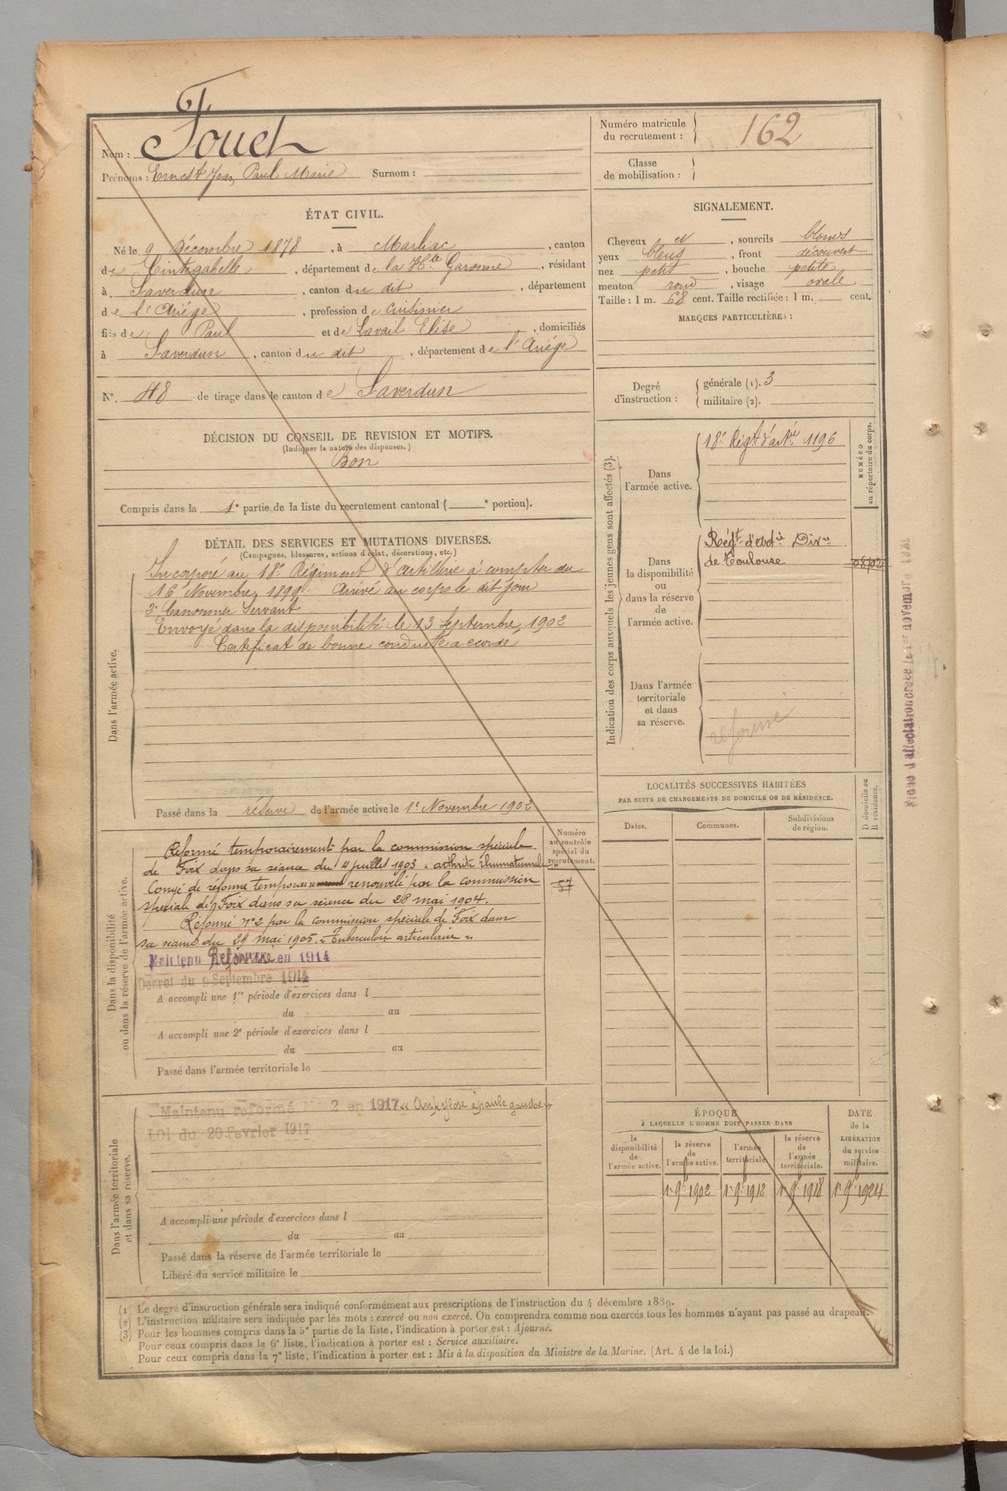 Nom : Fouet
Prénoms : Ernest Jean Paul Marie Surnom :
Numéro matricule
du recrutement : 162
Classe
de mobilisation :
ÉTAT CIVIL.
Né le 9 Décembre 1878, à Marliac, canton
de Cintegabelle, département de la Hte Garonne, résidant
à Saverdun, canton du dit, département
de l'Ariége, profession de cuisinier
fils de Paul et de Lavail Elise, domiciliés
à Saverdun, canton du dit, département de l'Ariége
N°. 48 de tirage dans le canton de Saverdun
SIGNALEMENT.
Cheveux et, sourcils blonds
yeux bleus, front découvert
nez petit, bouche petite
menton rond, visage ovale
Taille : 1 m. 68 cent. Taille rectifiée : 1 m. cent.
MARQUES PARTICULIÈRES :
Degré
d'instruction :
générale (1). 3
militaire (2).
DÉCISION DU CONSEIL DE REVISION ET MOTIFS.
(Indiquer la nature des dispenses.)
Bon
Compris dans la 1e partie de la liste du recrutement cantonal ( e portion).
DÉTAIL DES SERVICES ET MUTATIONS DIVERSES.
(Campagnes, blessures, actions d'éclat, décorations, etc.)
Dans l'armée active.
Incorporé au 18e Régiment d'artillerie à compter du
16 Novembre 1899. Arrivé au corps le dit jour
2e Canonnier Servant
Envoyé dans la disponibilité le 13 Septembre 1902
Certificat de bonne conduite accordé
Passé dans la réserve de l'armée active le 1er Novembre 1902
Indication des corps auxquels les jeunes gens sont affectés (3).
Dans
l'armée active.
18e Régt d'artie 1196
NUMÉRO
au répertoire du corps.
Dans
la disponibilité
ou
dans la réserve
de
l'armée active.
Régt d'artie Dire
de Toulouse
Dans l'armée
territoriale
et dans
sa réserve.
réformé
LOCALITÉS SUCCESSIVES HABITÉES
PAR SUITE DE CHANGEMENTS DE DOMICILE OU DE RÉSIDENCE.
Dates. Communes. Subdivisions
de région.
D domicile ou
R résidence.
Dans la disponibilité
ou dans la réserve de l'armée active.
Réformé temporairement par la commission spéciale
de Foix dans sa séance du 4 juillet 1903. arthrite rhumatismale
Congé de réforme temporaire renouvelé par la commission
spéciale de Foix dans sa séance du 28 mai 1904.
Réformé n°2 par la commission spéciale de Foix dans
sa séance du 29 mai 1905. "Tuberculose articulaire"
Maintenu Réformé en 1914
Décret du 9 Septembre 1914
Numéro
au contrôle
spécial du
recrutement.
57
A accompli une 1re période d'exercices dans l
du au
A accompli une 2e période d'exercices dans l
du au
Passé dans l'armée territoriale le
Dans l'armée territoriale
et dans sa réserve.
Maintenu réformé n° 2 en 1917 "Ankylose épaule gauche"
LOI du 20 Février 1917
A accompli une période d'exercices dans l
du au
Passé dans la réserve de l'armée territoriale le
Libéré du service militaire le
ÉPOQUE
À LAQUELLE L'HOMME DOIT PASSER DANS
la
disponibilité
de
l'armée active.
la réserve
de
l'armée active.
l'armée
territoriale.
la réserve
de
l'armée
territoriale.
DATE
de la
LIBÉRATION
du service
militaire.
1er 9bre 1902 1er 9bre 1912 1er 9bre 1918 1er 9bre 1924
(1) Le degré d'instruction générale sera indiqué conformément aux prescriptions de l'instruction du 4 décembre 1889.
(2) L'instruction militaire sera indiquée par les mots : exercé ou non exercé. On comprendra comme non exercés tous les hommes n'ayant pas passé au drapeau.
(3) Pour les hommes compris dans la 5e partie de la liste, l'indication à porter est : Ajourné.
Pour ceux compris dans la 6e liste, l'indication à porter est : Service auxiliaire.
Pour ceux compris dans la 7e liste, l'indication à porter est : Mis à la disposition du Ministre de la Marine. (Art. 4 de la loi.)